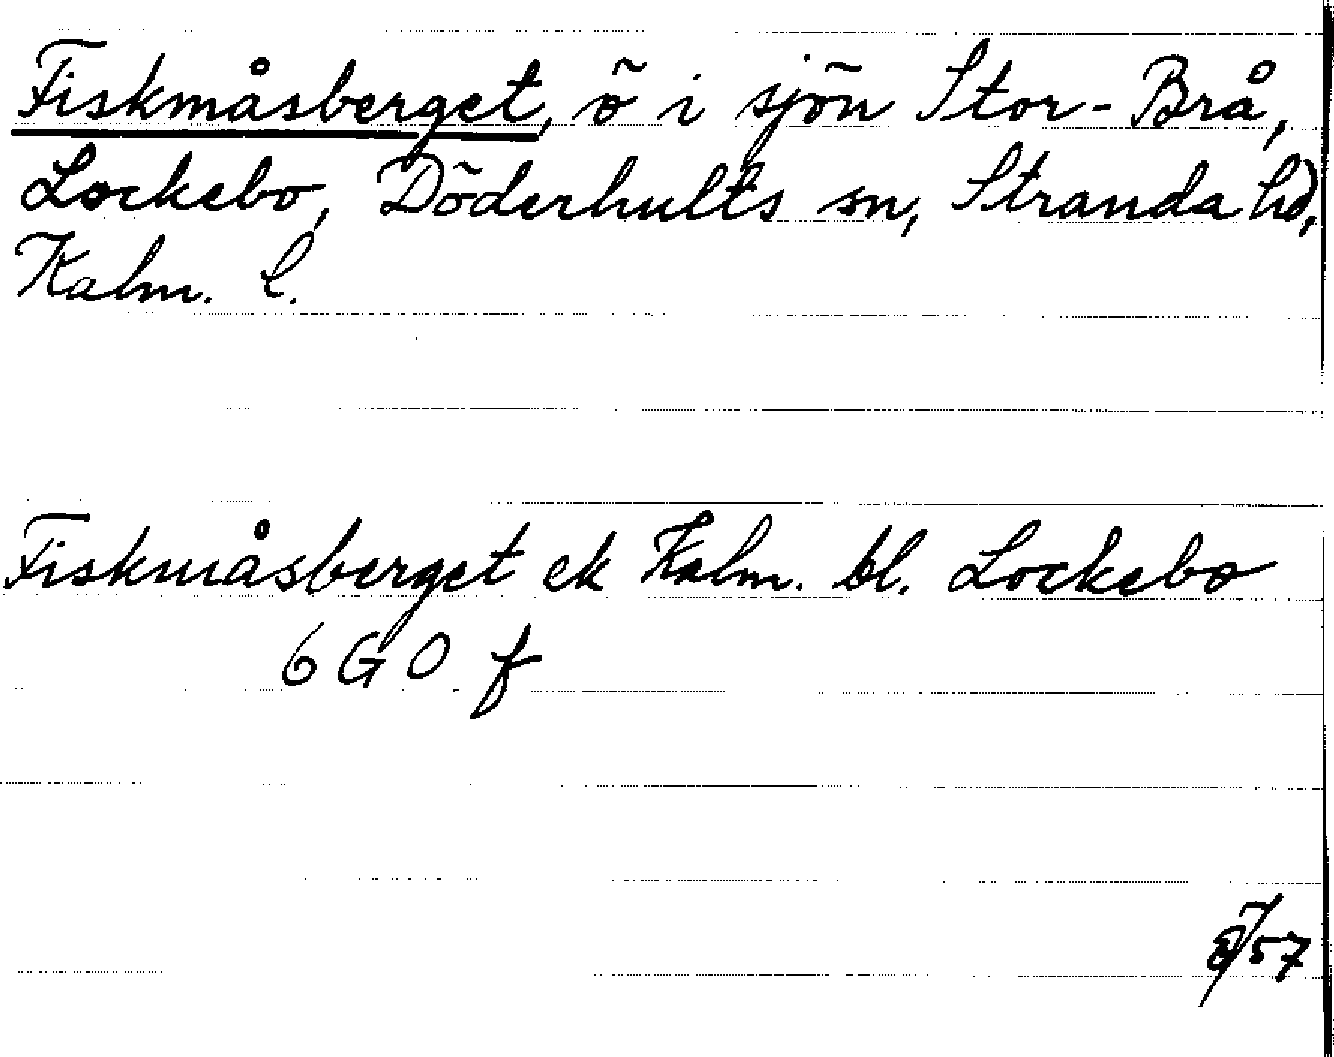 Fiskmåsberget, ö i sjön Stor-Brå,
Lockebo, Döderhults sn, Stranda hd,
Kalm. l.
Fiskmåsberget ek Kalm. bl. Lockebo
6 G O f
57